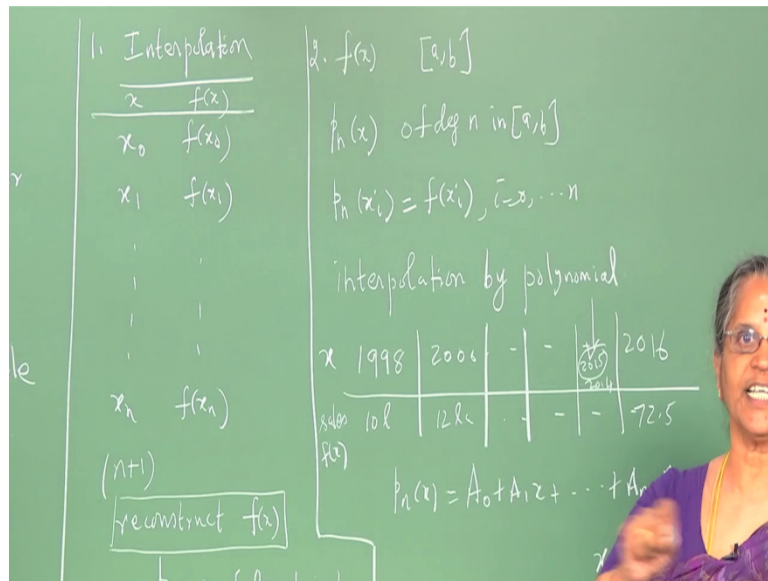 1. Interpolation
x f(x)
x₀ f(x₀)
x₁ f(x₁)
xₙ f(xₙ)
(n+1)
reconstruct f(x)
2. f(x) [a,b]
pₙ(x) of deg n in [a,b]
pₙ(xᵢ) = f(xᵢ), i=0, ... n
interpolation by polynomial
x 1998 2000 - - 2015 2016
2014
sales 10l 12la .. - - 72.5
f(x)
pₙ(x) = A₀ + A₁x + ... + Aₙ
x